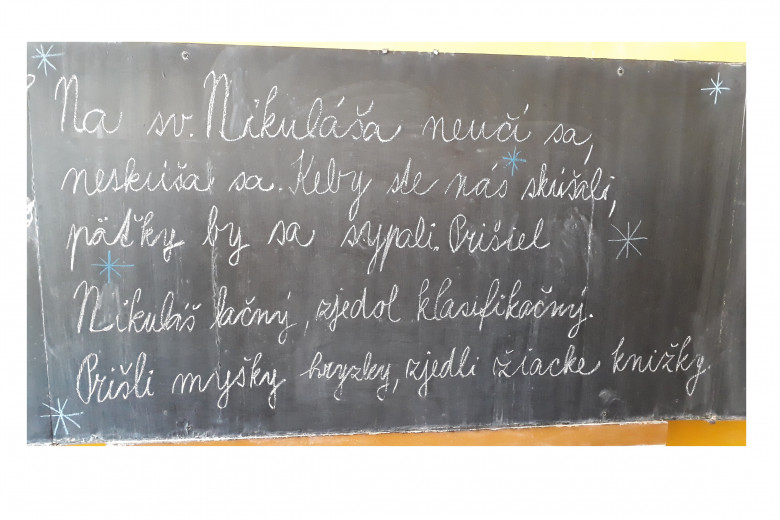 Na sv. Nikuláša neučí sa,
neskúša sa. Keby ste nás skúšali,
päťky by sa sypali. Prišiel
Nikuláš lačný, zjedol klasifikačný.
Prišli myšky hryzky, zjedli žiacke knižky.